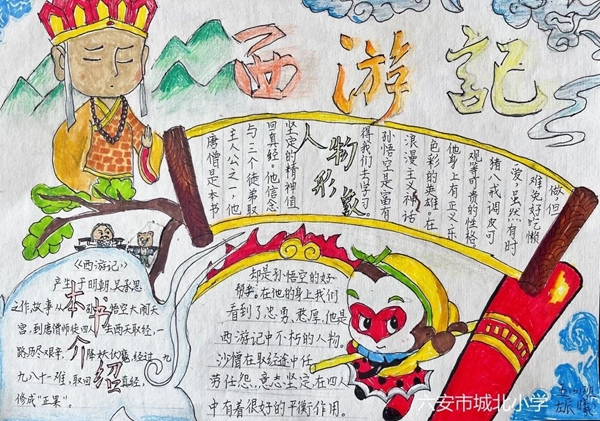 西游記
人物形象
唐僧是本书
主人公之一，他
与三个徒弟取
回真经。他信念
坚定的精神值
得我们去学习。
孙悟空是富有
浪漫主义神话
色彩的英雄。在
他身上有正义、乐
观等可贵的性格，
猪八戒调皮可
爱，虽然有时
难免好吃懒
做，但
却是孙悟空的好
帮手。在他的身上我们
看到了忠勇、憨厚，他是
西游记中不朽的人物。
沙僧在取经途中任
劳任怨，意志坚定在四人
中有着很好的平衡作用。
本书介绍
《西游记》
产生于明朝，吴承恩
之作，故事从 悟空大闹天
宫，到唐僧师徒四人 西天取经，一
路历尽艰辛，降妖伏魔，经过九
九八十一难，取回真经，
修成“正果”。
班
曦
六安市城北小学